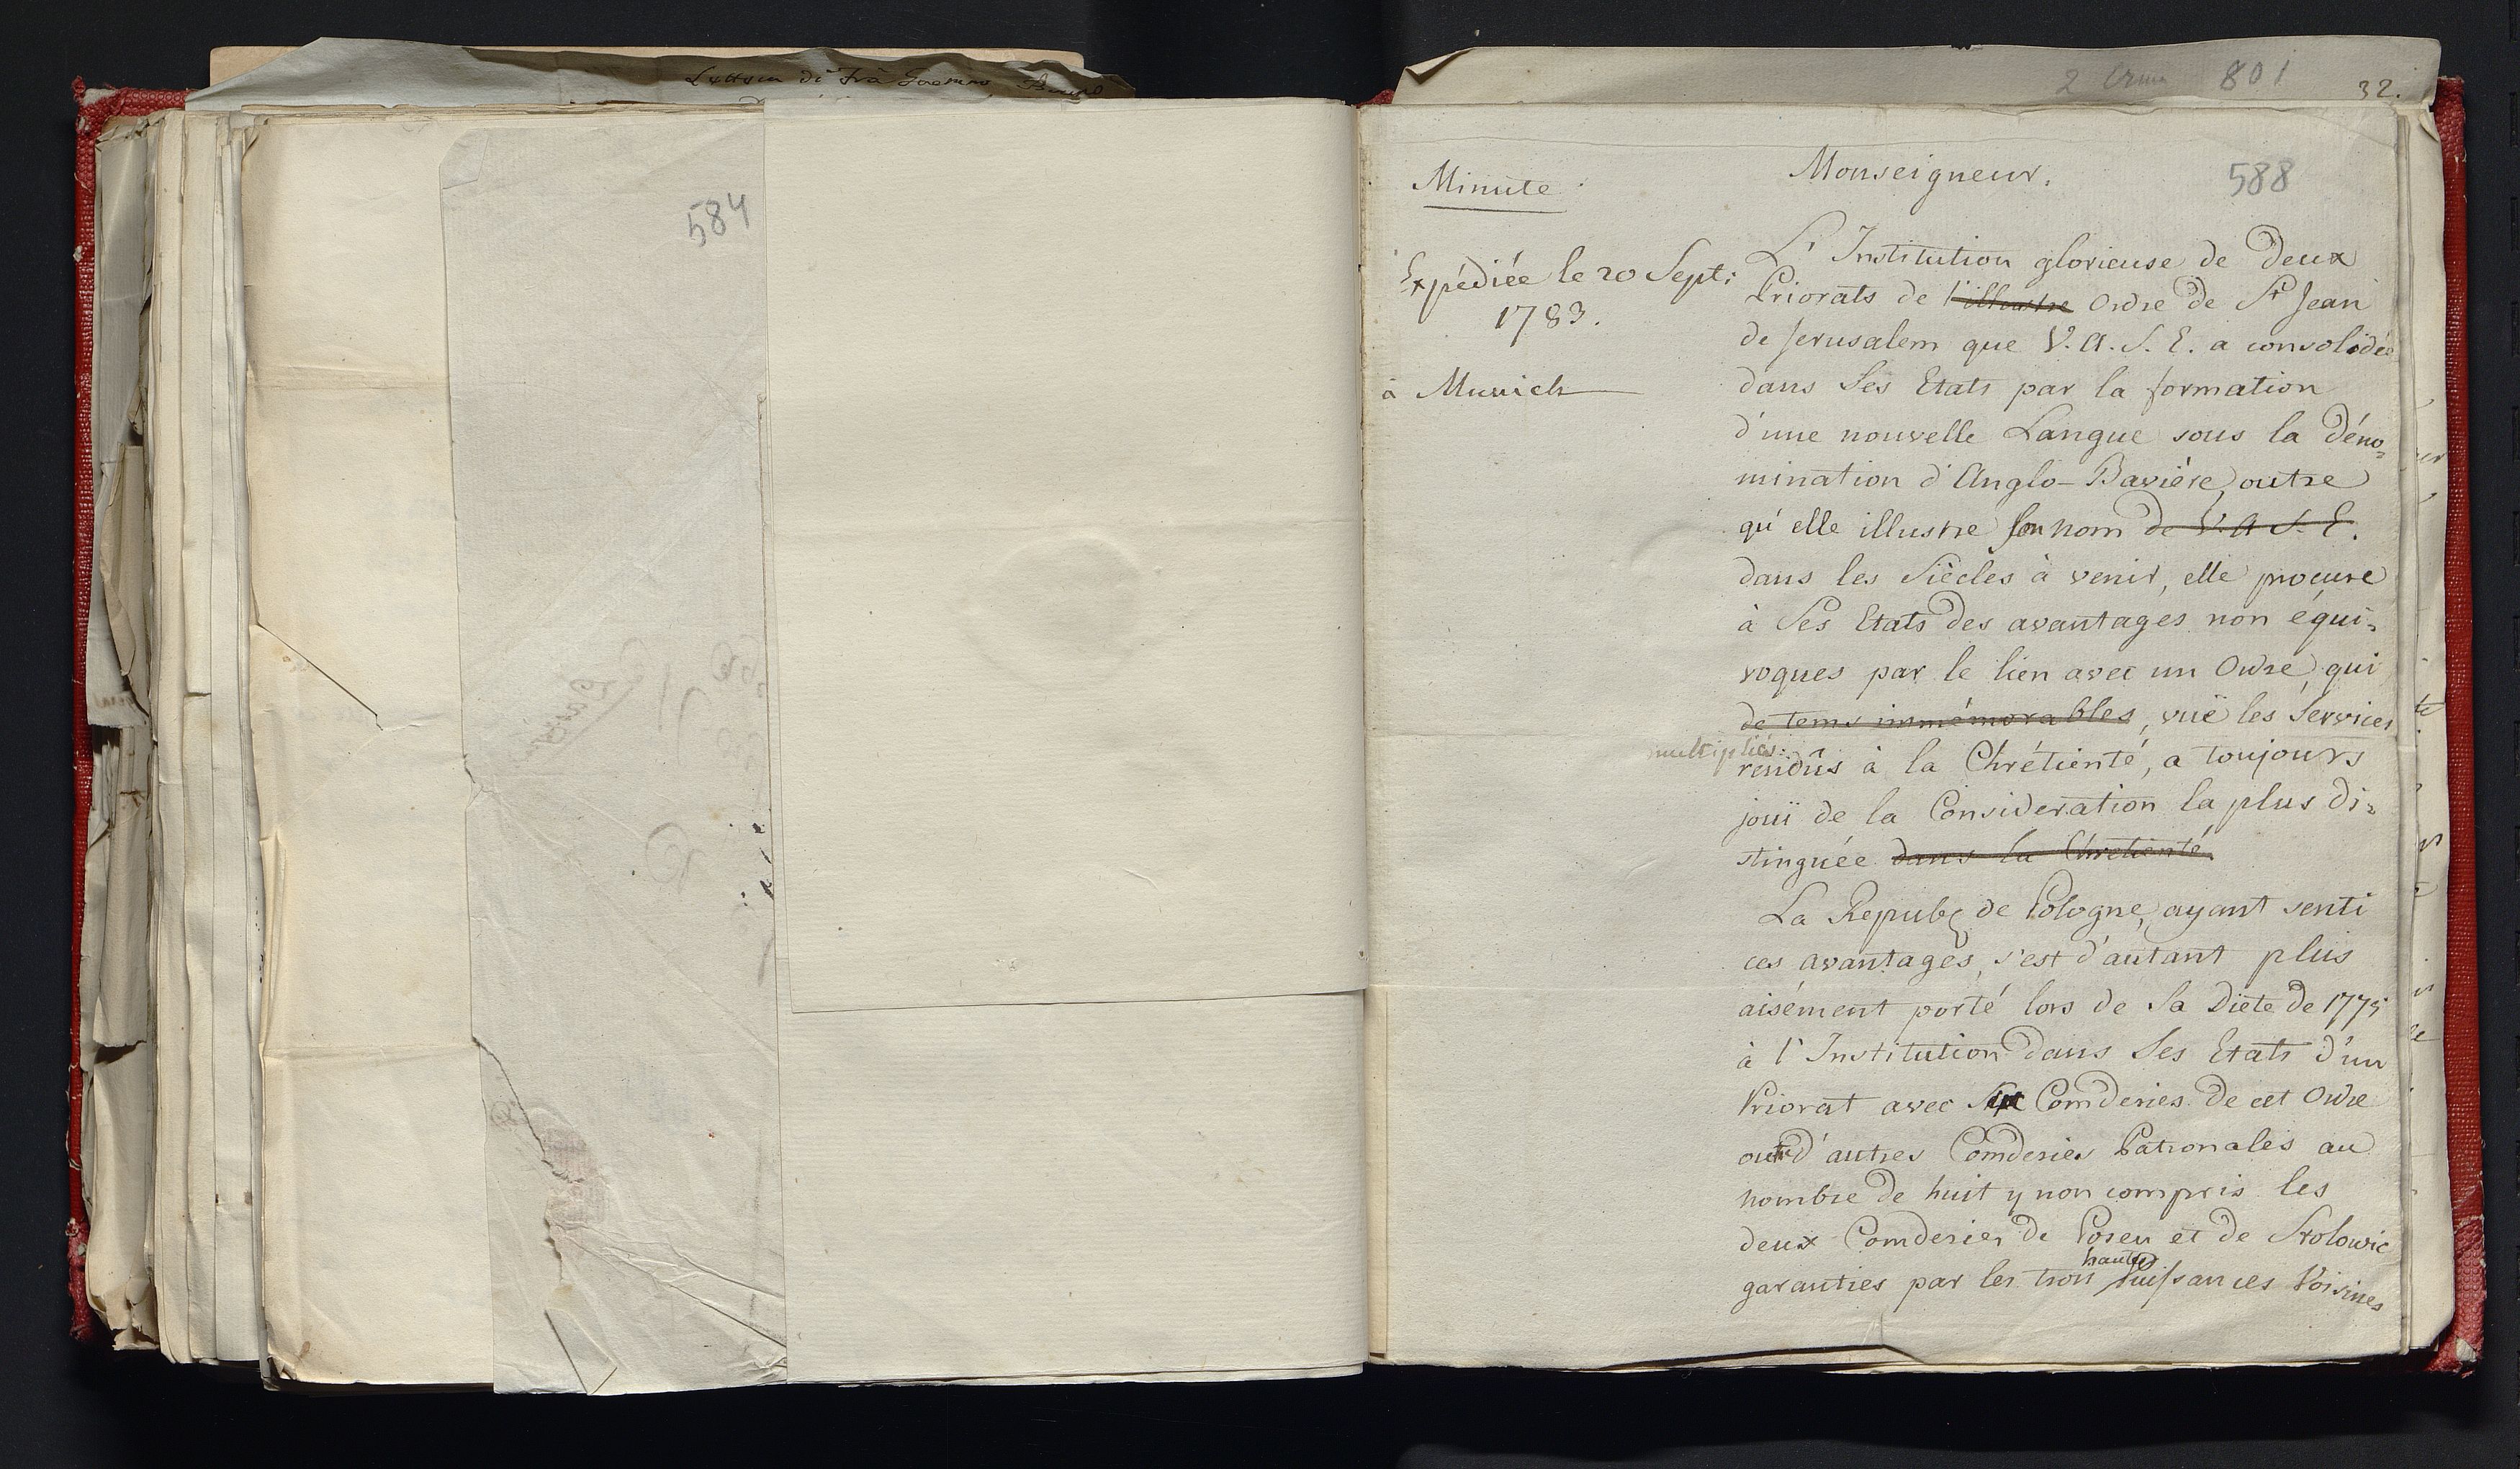 Lettera di Frà Gaetano Bruno
584
801
32.
588
Minute
Expédiée le 20 Sept:
1783.
à Munich
Monseigneur,
L'Institution glorieuse de deux
Priorats de l'illustre Ordre de St Jean
de Jerusalem que V. A. S. E. a consolidée
dans Ses Etats par la formation
d'une nouvelle Langue sous la déno=
mination d'Anglo-Bavière, outre
qu'elle illustre son nom de V. A. S. E.
dans les Siècles à venir, elle procure
à Ses Etats des avantages non équi=
voques par le lien avec un Ordre, qui
de tems immémorables, vuë les Services
multipliés
rendûs à la Chrétienté, a toujours
jouï de la Consideration la plus di=
stinguée dans la Chretienté.
La Republ de Pologne, ayant senti
ces avantages, s'est d'autant plus
aisément porté lors de Sa Diète de 1775
à l'Institution dans Ses Etats d'un
Priorat avec Comderies de cet Ordre
outre d'autres Comderies Patronales au
nombre de huit y non compris les
deux Comderies de Posen et de Stolowic
hautes
garanties par les trois Puissances Voisines